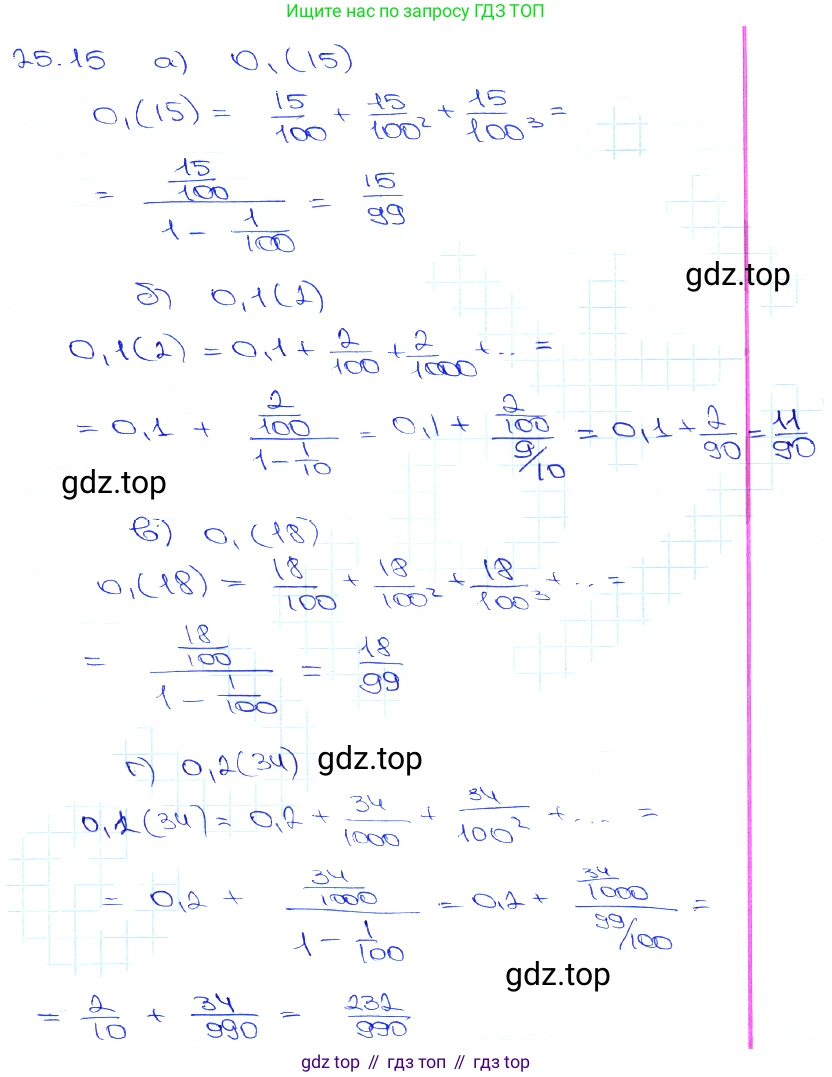 Ищите нас по запросу ГДЗ ТОП
25.15 а) 0,(15)
0,(15) = 15/100 + 15/100² + 15/100³ =
= (15/100)/(1 - 1/100) = 15/99
gdz.top
б) 0,1(2)
0,1(2) = 0,1 + 2/100 + 2/1000 + ... =
= 0,1 + (2/100)/(1 - 1/10) = 0,1 + (2/100)/(9/10) = 0,1 + 2/90 = 11/90
gdz.top
в) 0,(18)
0,(18) = 18/100 + 18/100² + 18/100³ + ... =
= (18/100)/(1 - 1/100) = 18/99
г) 0,2(34) gdz.top
0,2(34) = 0,2 + 34/1000 + 34/100² + ... =
= 0,2 + (34/1000)/(1 - 1/100) = 0,2 + (34/1000)/(99/100) =
gdz.top
= 2/10 + 34/990 = 232/990
gdz top // гдз топ // gdz top